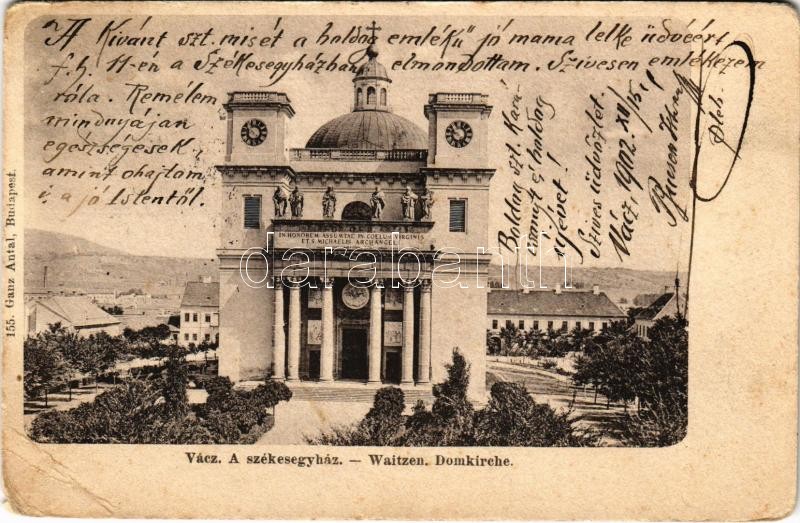 A Kívánt szt. misét a boldog emlékű jó mama lelke üdvéért
f. h. 11-én a Székesegyházban elmondottam. Szívesen emlékezem
róla. Remélem
mindnyájan
egészségesek,
amint óhajtom
is a jó Istentől.
Boldog szt. Kará-
csonyt és boldog
újévet!
Szives üdvözlet.
Vácz, 1902. XII/15.
Pleb.
IN HONOREM ASSUMTAE IN COELUM VIRGINIS
ET S. MICHAELIS ARCHANGELI
darabanth
155. Ganz Antal, Budapest.
Vácz. A székesegyház. — Waitzen. Domkirche.